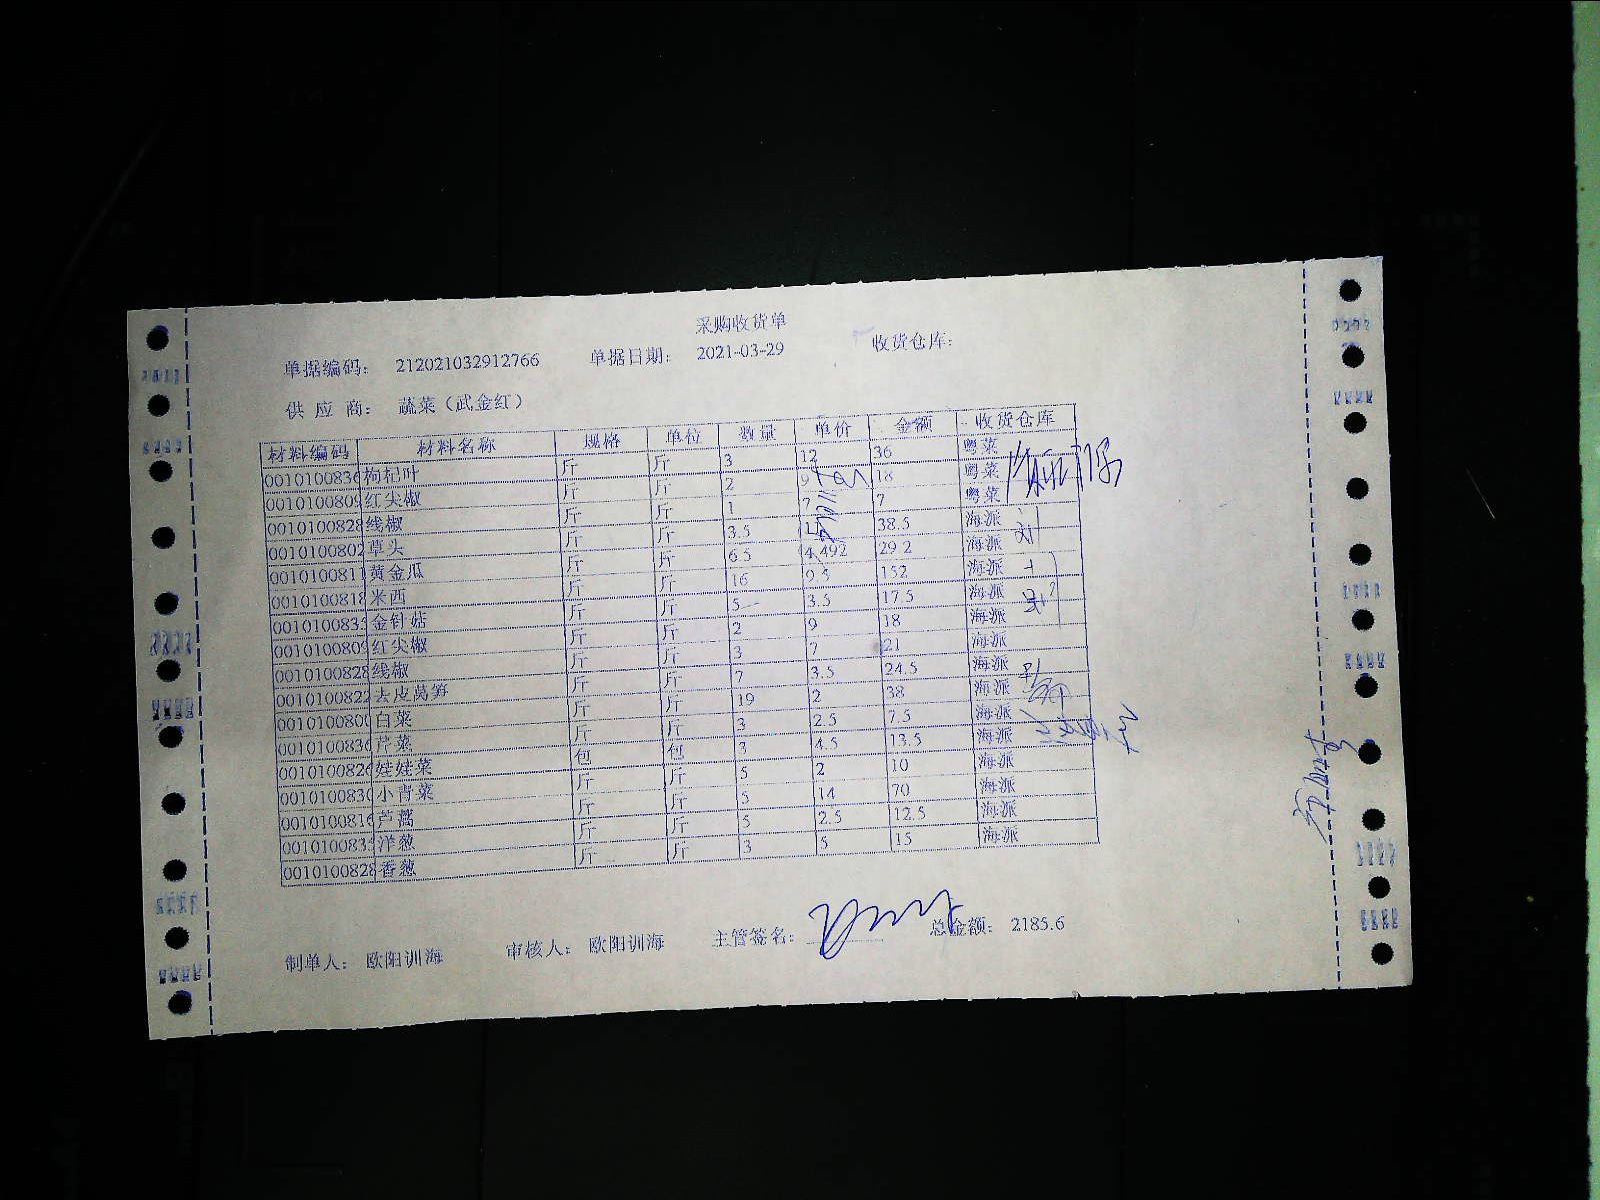 采购收货单
单据编码: 212021032912766 单据日期: 2021-03-29 收货仓库:
供 应 商: 蔬菜（武金红）
材料编码 材料名称 规格 单位 数量 单价 金额 收货仓库
001010083 枸杞叶 斤 斤 3 12 36 粤菜
001010080 红尖椒 斤 斤 2 9 18 粤菜
0010100828 线椒 斤 斤 1 7 7 粤菜
0010100802 草头 斤 斤 3.5 11 38.5 海派
001010081 黄金瓜 斤 斤 6.5 4.492 29.2 海派
0010100818 米西 斤 斤 16 9.5 152 海派
001010083 金针菇 斤 斤 5 3.5 17.5 海派
001010080 红尖椒 斤 斤 2 9 18 海派
0010100828 线椒 斤 斤 3 7 21 海派
0010100822 去皮莴笋 斤 斤 7 3.5 24.5 海派
001010080 白菜 斤 斤 19 2 38 海派
001010083 芹菜 斤 斤 3 2.5 7.5 海派
001010082 娃娃菜 包 包 3 4.5 13.5 海派
001010083 小青菜 斤 斤 5 2 10 海派
001010081 芦蒿 斤 斤 5 14 70 海派
001010083 洋葱 斤 斤 5 2.5 12.5 海派
0010100828 香葱 斤 斤 3 5 15 海派
制单人: 欧阳训海 审核人: 欧阳训海 主管签名: 总金额: 2185.6